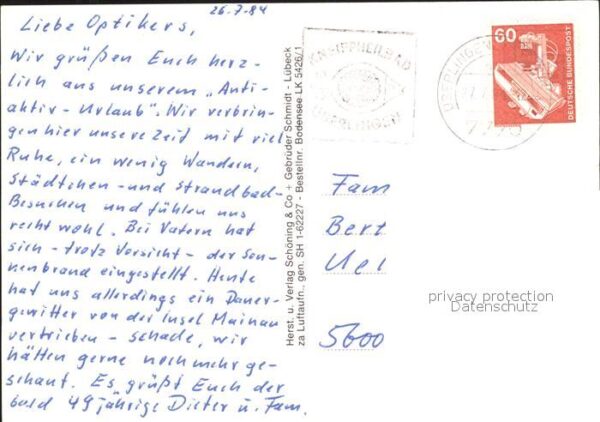 26.7.84
Liebe Optikers,
Wir grüßen Euch herz-
lich aus unserem "Anti-
aktiv-Urlaub". Wir verbrin-
gen hier unsere Zeit mit viel
Ruhe, ein wenig Wandern,
Städtchen- und Strandbad-
Besuchen und fühlen uns
recht wohl. Bei Vatern hat
sich - trotz Vorsicht - der Son-
nenbrand eingestellt. Heute
hat uns allerdings ein Dauer-
gewitter von der Insel Mainau
vertrieben - schade, wir
hätten gerne noch mehr ge-
schaut. Es grüßt Euch der
bald 49jährige Dieter u. Fam.
Herst. u. Verlag Schöning & Co + Gebrüder Schmidt - Lübeck
za Luftaufn., gen. SH I-62227 - Bestellnr. Bodensee LK 5426/1
KNEIPPHEILBAD
ÜBERLINGEN
ÜBERLINGEN
7770
60
DEUTSCHE BUNDESPOST
Fam
Bert
Uel
5600
privacy protection
Datenschutz